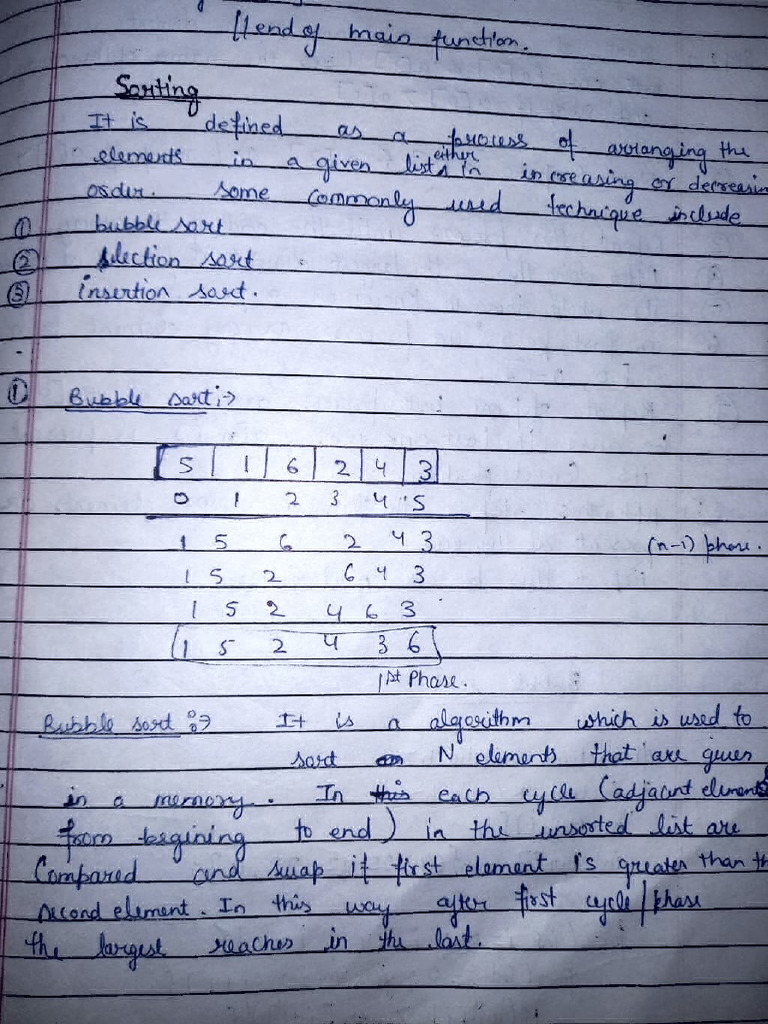 //end of main function.
Sorting
It is defined as a process of arranging the
elements in a given list either in increasing or decreasin
order. Some commonly used technique include
① bubble sort
② selection sort
③ insertion sort.
① Bubble sort :→
5 1 6 2 4 3
0 1 2 3 4 5
1 5 6 2 4 3 (n-1) phase.
1 5 2 6 4 3
1 5 2 4 6 3
1 5 2 4 3 6
1st Phase.
Bubble sort :→ It is a algorithm which is used to
sort N elements that are given
in a memory. In each cycle (adjacent elements
from begining to end) in the unsorted list are
Compared and swap if first element is greater than th
second element. In this way after first cycle/phase
the largest reaches in the last.